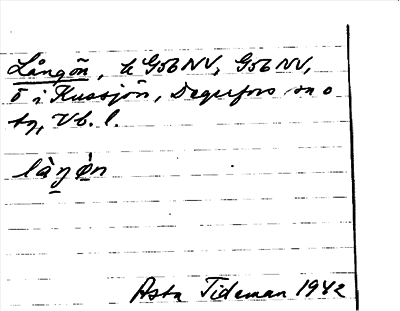 Långön, k G56NV, G56NV,
ö i Kussjön, Degerfors sn o
tg, Vb. l.
làŋø̀n
Asta Tideman 1942